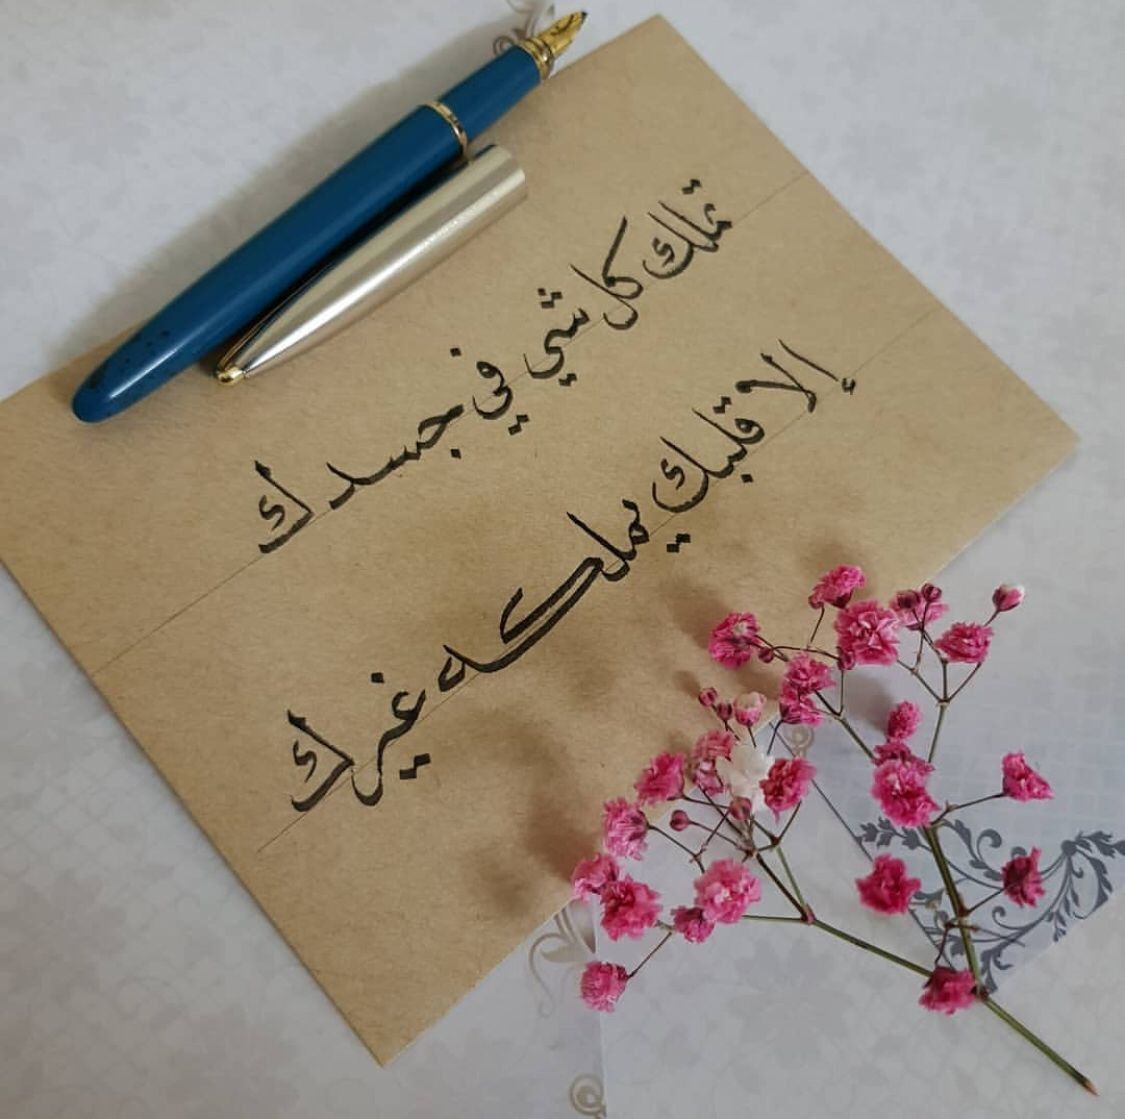 تملك كل شي في جسدك
إلا قلبك يملكه غيرك